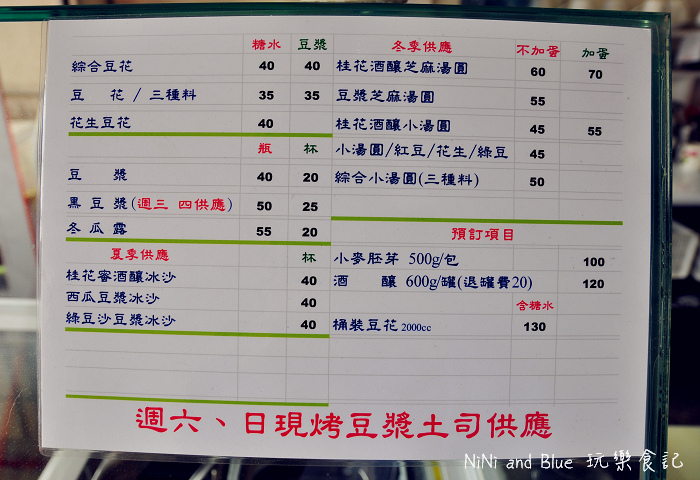 糖水 豆漿
綜合豆花 40 40
豆 花 / 三種料 35 35
花生豆花 40
瓶 杯
豆 漿 40 20
黑豆漿(週三 四供應) 50 25
冬瓜露 55 20
夏季供應 杯
桂花蜜酒釀冰沙 40
西瓜豆漿冰沙 40
綠豆沙豆漿冰沙 40
冬季供應 不加蛋 加蛋
桂花酒釀芝麻湯圓 60 70
豆漿芝麻湯圓 55
桂花酒釀小湯圓 45 55
小湯圓/紅豆/花生/綠豆 45
綜合小湯圓(三種料) 50
預訂項目
小麥胚芽 500g/包 100
酒 釀 600g/罐(退罐費20) 120
含糖水
桶裝豆花 2000cc 130
週六、日現烤豆漿土司供應
NiNi and Blue 玩樂食記